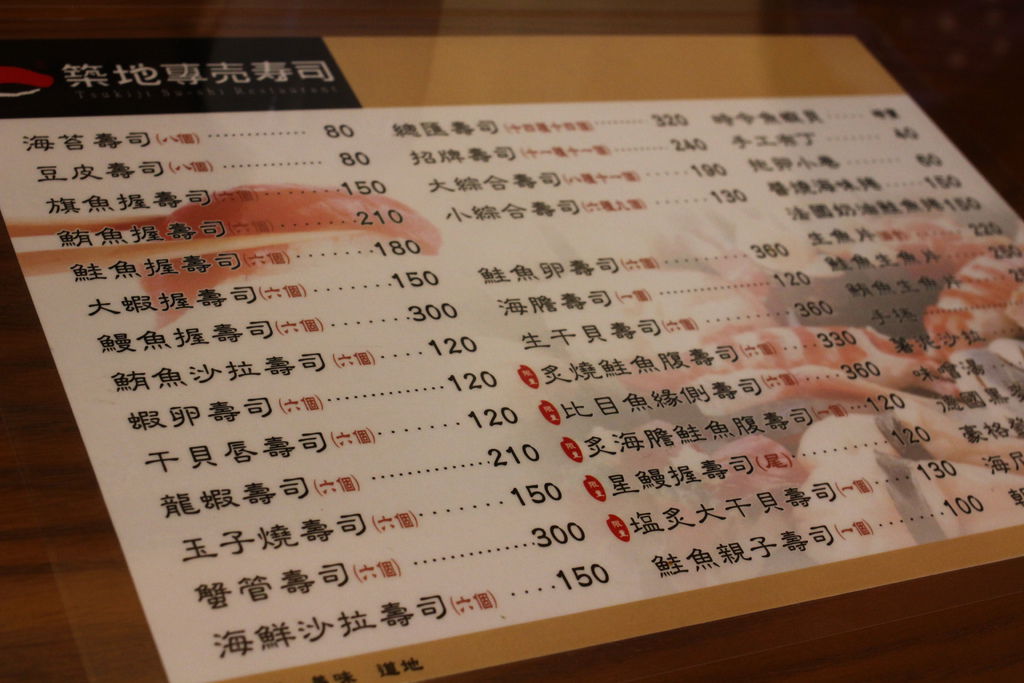 築地專売寿司
Tsukiji Sushi Restaurant
海苔壽司(八個) 80
豆皮壽司(八個) 80
旗魚握壽司(六個) 150
鮪魚握壽司(六個) 210
鮭魚握壽司(六個) 180
大蝦握壽司(六個) 150
鰻魚握壽司(六個) 300
鮪魚沙拉壽司(六個) 120
蝦卵壽司(六個) 120
干貝唇壽司(六個) 120
龍蝦壽司(六個) 210
玉子燒壽司(六個) 150
蟹管壽司(六個) 300
海鮮沙拉壽司(六個) 150
總匯壽司(十四種十四個) 320
招牌壽司(十一種十一個) 240
大綜合壽司(八種十一個) 190
小綜合壽司(六種九個) 130
鮭魚卵壽司(六個) 360
海膽壽司(一個) 120
生干貝壽司(六個) 360
限量 炙燒鮭魚腹壽司(六個) 330
限量 比目魚緣側壽司(六個) 360
限量 炙海膽鮭魚腹壽司(一個) 120
限量 星鰻握壽司(尾) 120
限量 塩炙大干貝壽司(一個) 130
鮭魚親子壽司(一個) 100
手工布丁 40
鮑卵小卷 60
醬燒海味捲 150
法國奶油鮭魚捲 150
生魚片 220
鮭魚生魚片 250
鮪魚生魚片
手捲
薯泥沙拉
味噌湯
德國黑麥
豪格登
海尼
美味 道地